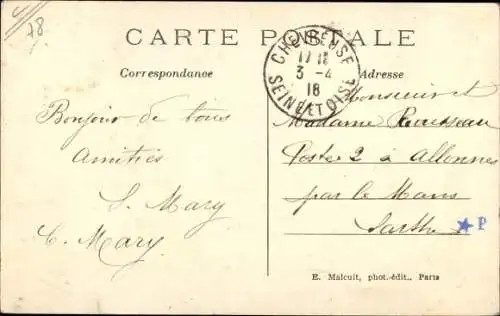 78
CARTE POSTALE
Correspondance
Adresse
CHEVREUSE
17 18
3 - 4
18
SEINE ET OISE
Bonjour de tous
Amitiés
S. Mary
C. Mary
Monsieur et
Madame Rousseau
Poste 2 à Allonnes
par le Mans
Sarthe
P
E. Malcuit, phot.-édit., Paris